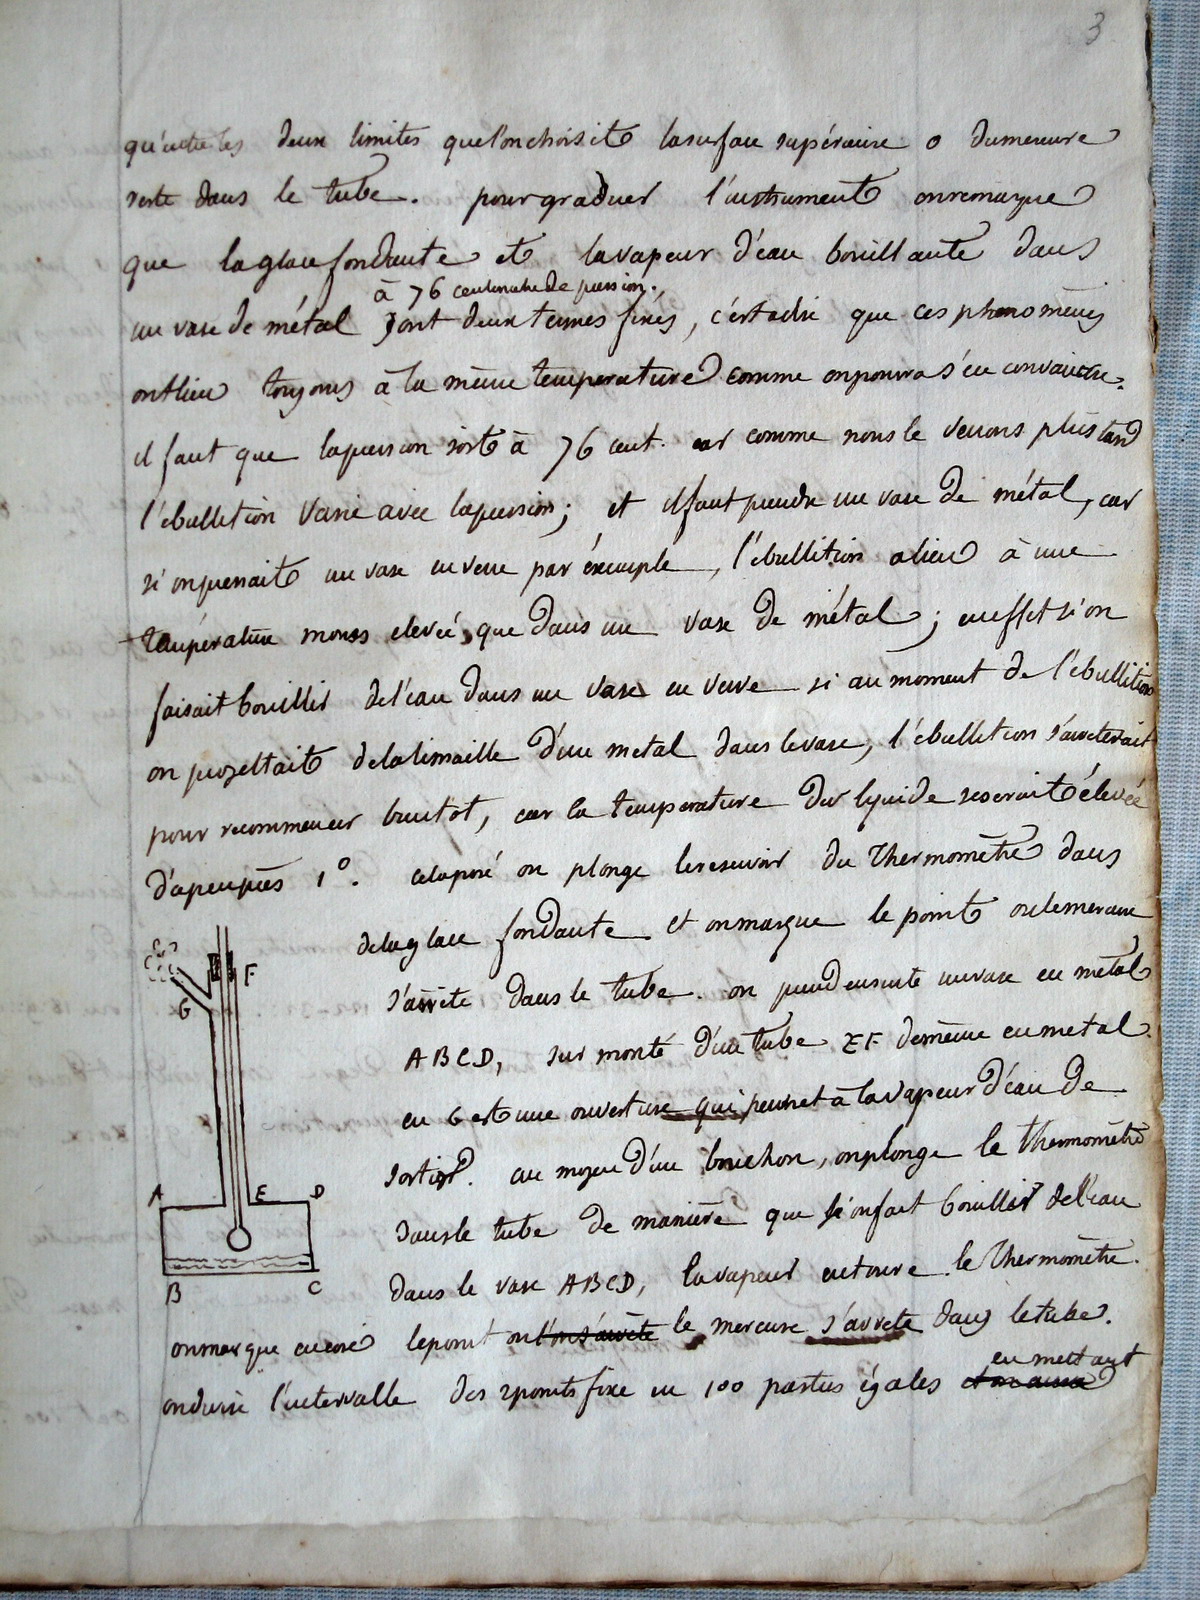 3
qu'entre les deux limites que l'on choisit la surface supérieure o du mercure
reste dans le tube. pour graduer l'instrument on remarque
que la glace fondante et la vapeur d'eau bouillante dans
à 76 centimetre de pression.
un vase de métal sont deux termes fixes, c'est a dire que ces phenomènes
ont lieu toujours à la même temperature comme on pourra s'en convaincre.
il faut que la pression soit à 76 cent. car comme nous le verrons plus tard
l'ebullition varie avec la pression; et il faut prendre un vase de métal, car
si on prenait un vase en verre par éxemple, l'ebullition a lieu à une
température moins elevée, que dans un vase de métal; en effet si on
faisait bouillir de l'eau dans un vase en verre si au moment de l'ebullition
on projettait de la limaille d'un metal dans le vase, l'ebullition s'arreterait
pour recommencer bientot, car la temperature du liquide se serait élevée
d'a peu près 1°. cela posé on plonge le reservoir du Thermomètre dans
de la glace fondante et on marque le point ou le mercure
s'arrête dans le tube. on prend ensuite un vase en métal
ABCD, surmonté d'un tube EF de même en metal.
en G est une ouverture qui permet à la vapeur d'eau de
sortir. au moyen d'un bouchon, on plonge le thermomètre
dans le tube de manière que si on fait bouillir de l'eau
dans le vase ABCD, la vapeur entoure le Thermomètre.
on marque encore le point ou l'on s'arrète le mercure s'arrete dans le tube.
en mettant
on divise l'intervalle des 2 points fixe en 100 parties égales
F
G
A E D
B C